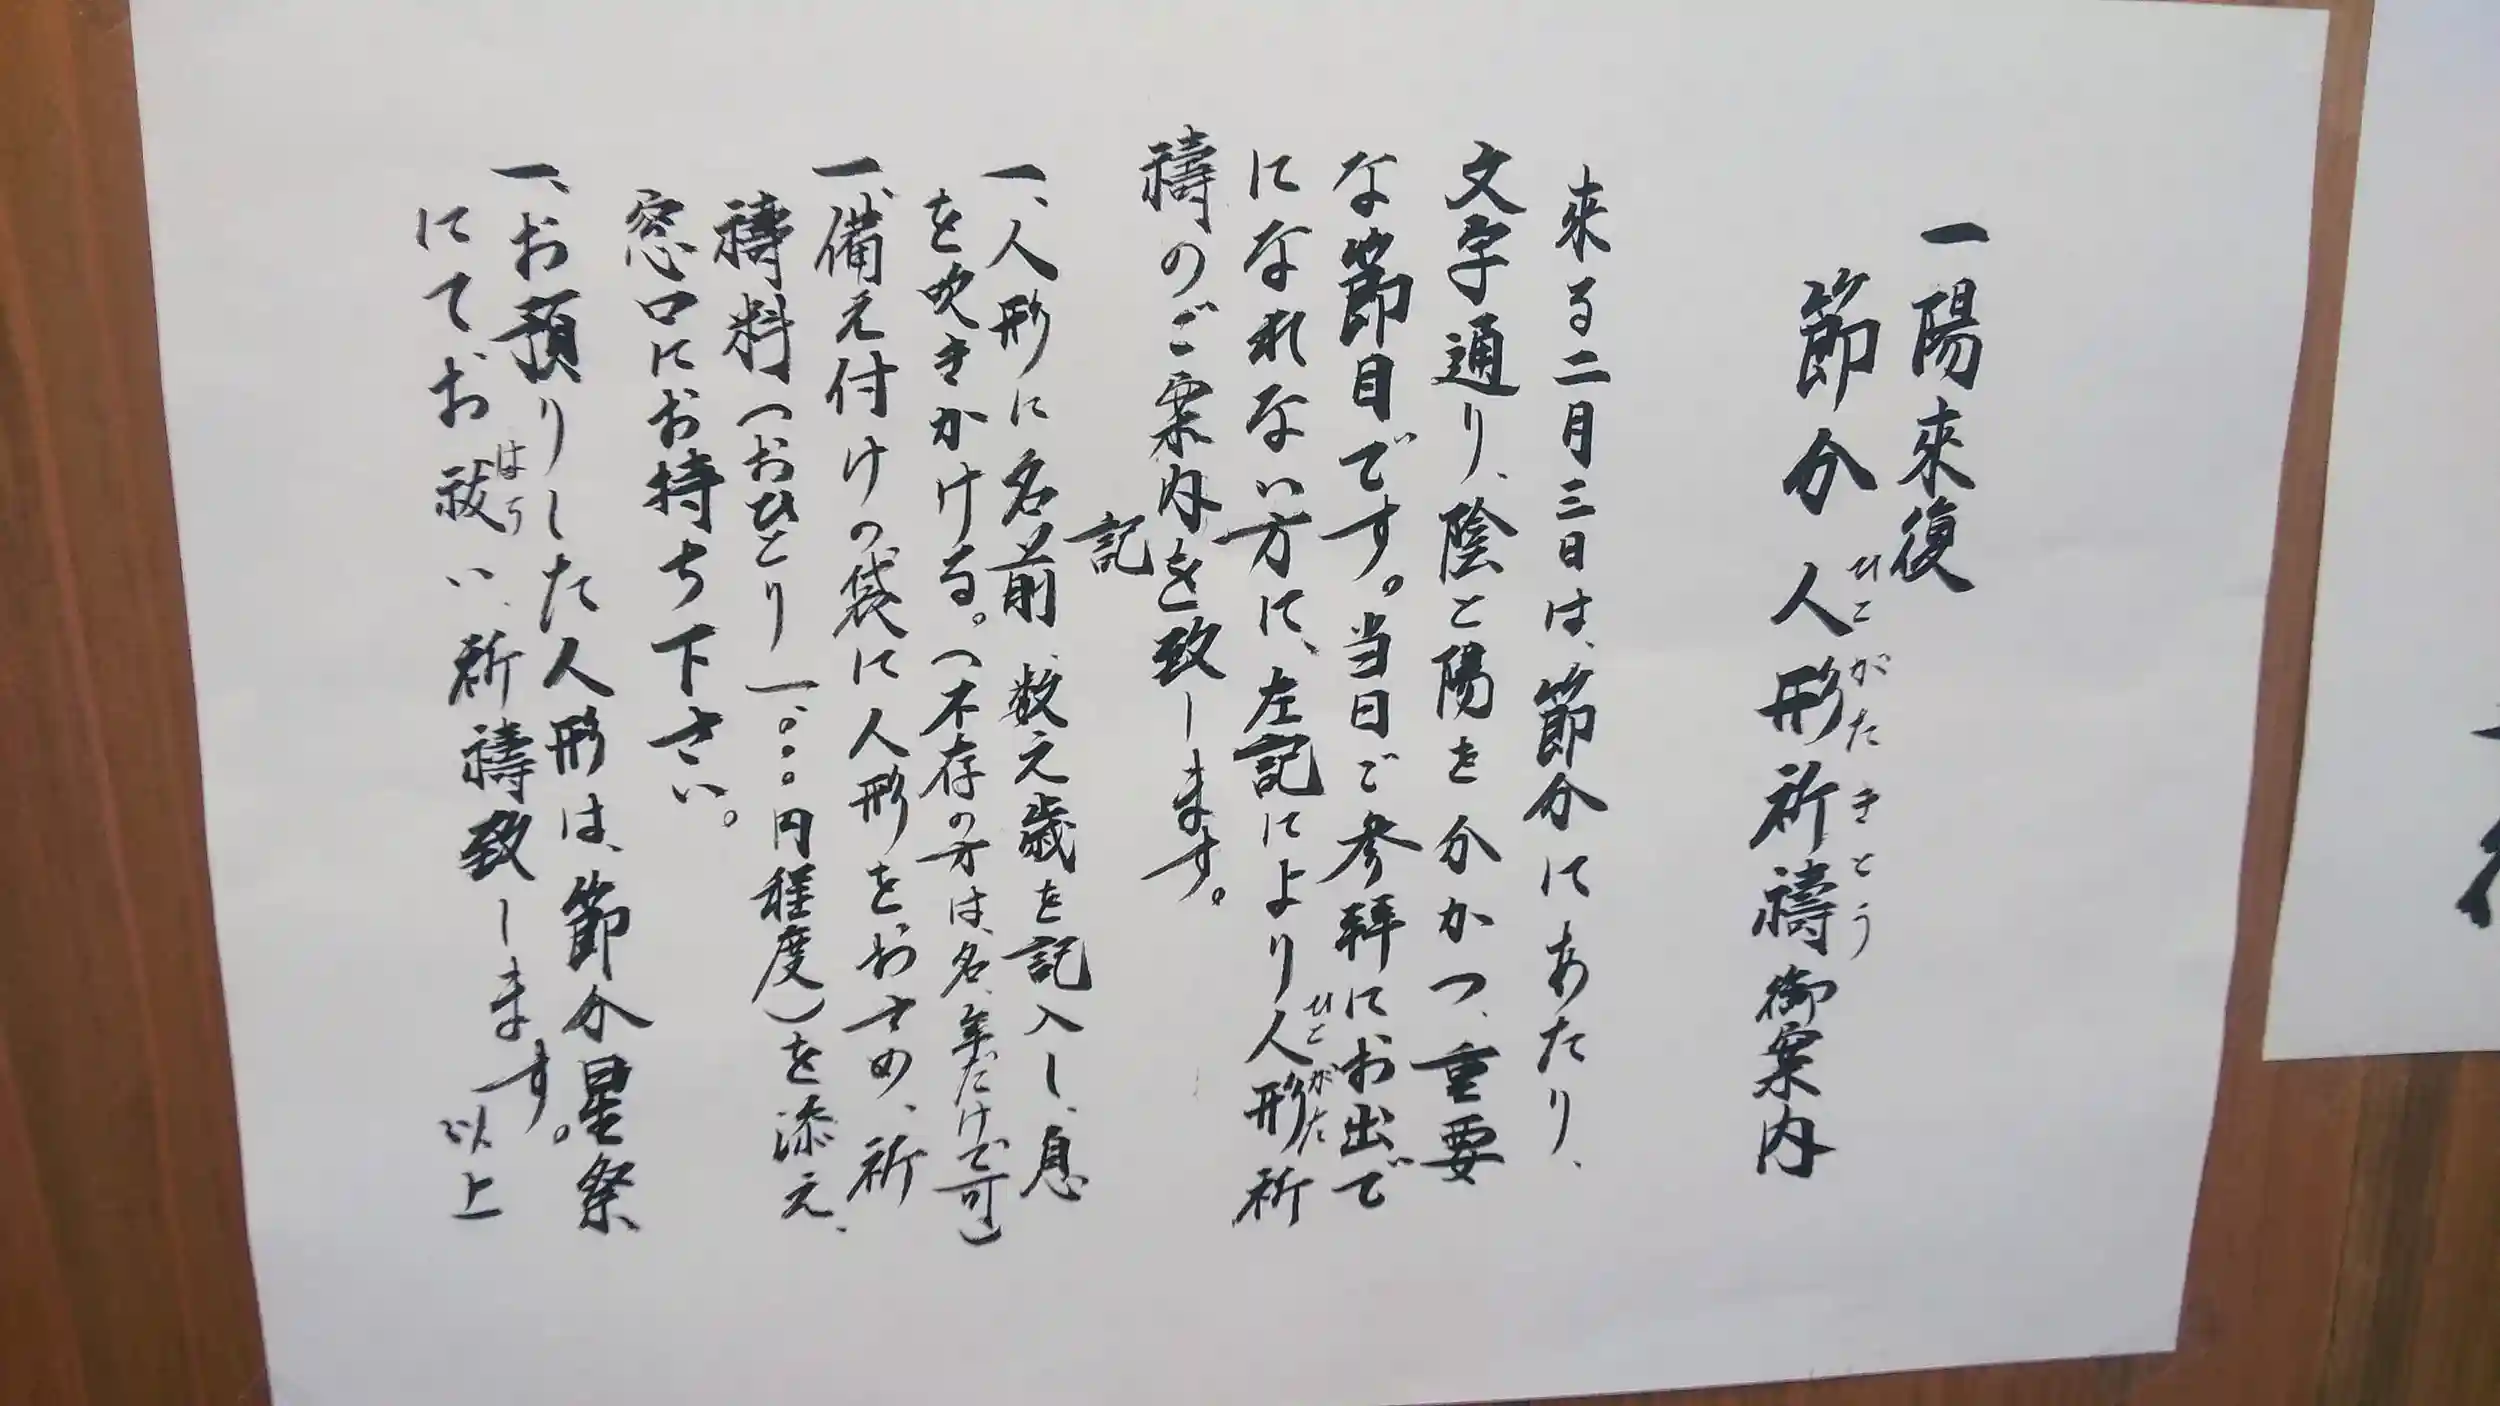 一陽来復
節分人形祈禱御案内
ひとがたきとう
来る二月三日は、節分にあたり、
文字通り、陰と陽を分かつ、重要
な節目です。当日ご参拝にお出で
になれない方に、左記により人形祈
ひとがた
禱のご案内を致します。
記
一、人形に名前、数え歳を記入し、息
を吹きかける。(不存の方は、名、年だけで可)
一、備え付けの袋に人形をおさめ、祈
禱料(おひとり一、〇〇〇円程度)を添え、
窓口にお持ち下さい。
一、お預りした人形は、節分星祭
にてお祓い、祈禱致します。
はら
以上